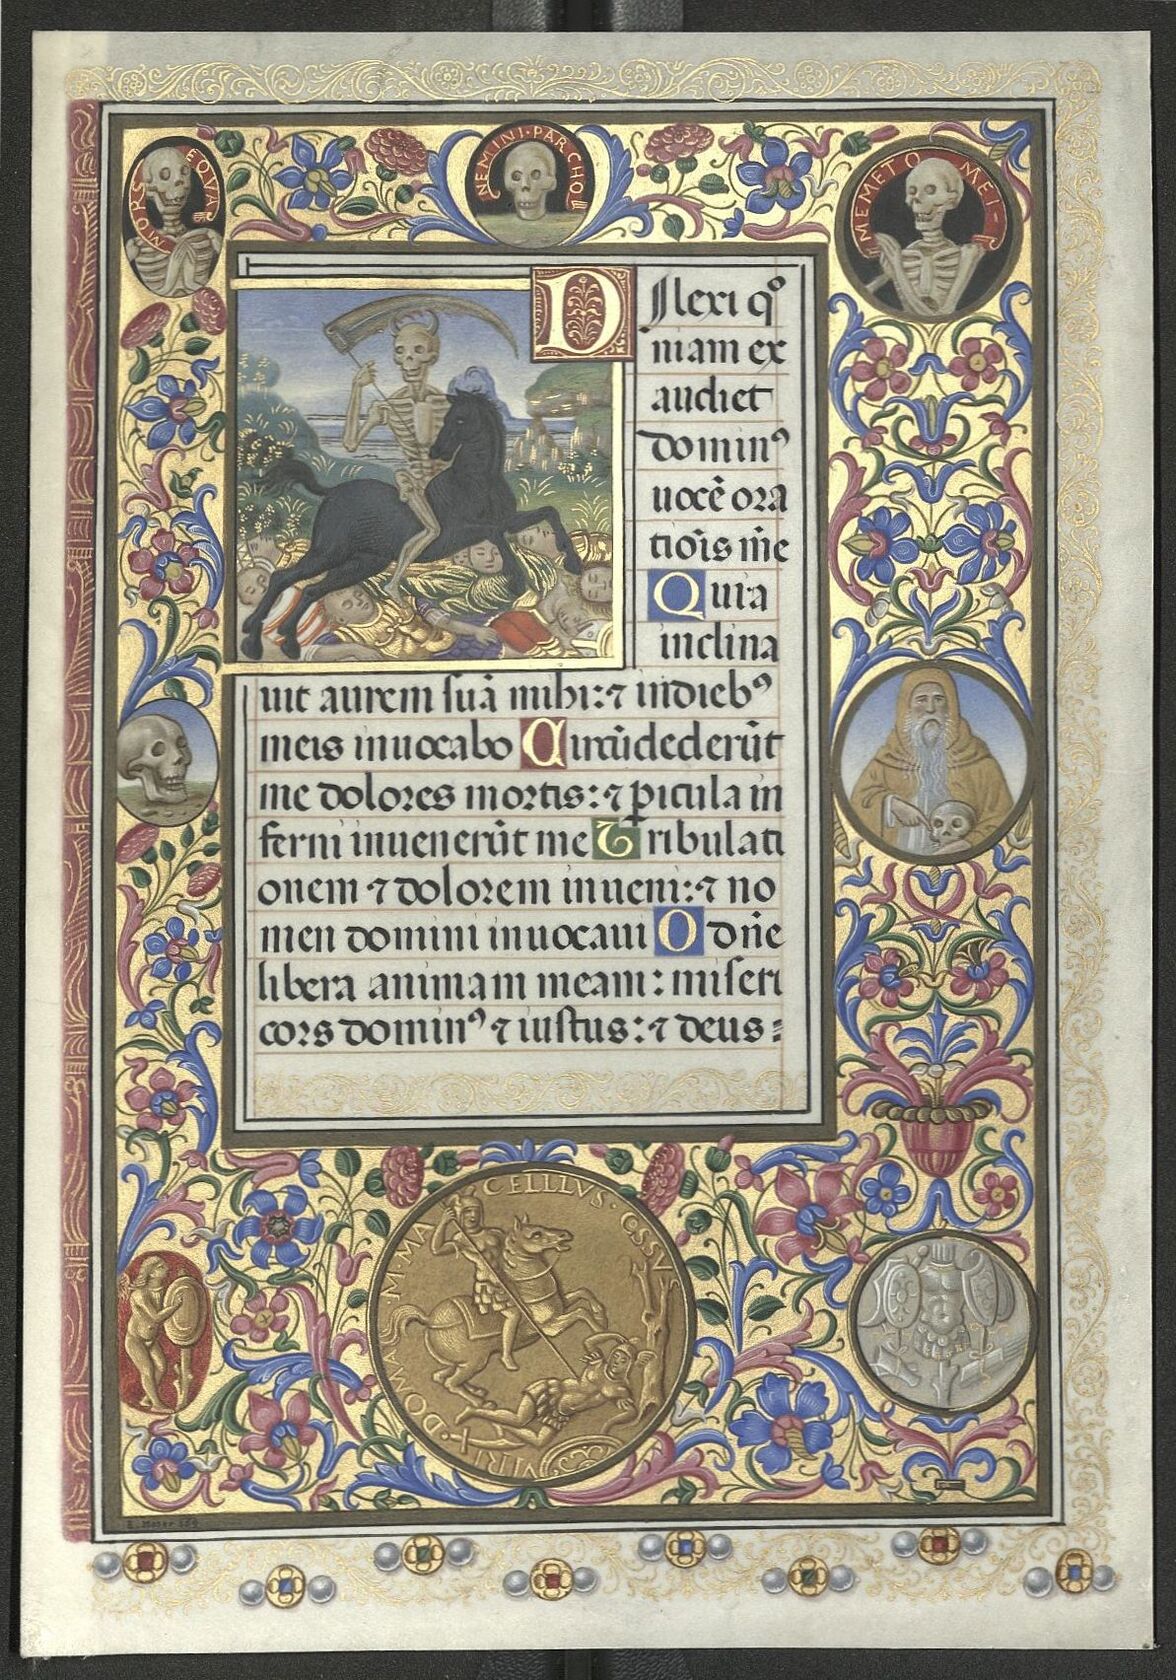 MORS EQUA
NEMINI·PARCHO
MEMETO MEI
Dilexi qº
niam ex
audiet
dominꝰ
uocē ora
tiōis m̄e
Quia
inclina
uit aurem suā mihi:⁊ indiebꝰ
meis inuocabo Circūdederūt
me dolores mortis:⁊ ꝑicula in
ferni inuenerūt me Tribulati
onem ⁊ dolorem inueni:⁊ no
men domini inuocaui O dn̄e
libera animam meam: miseri
cors dominꝰ ⁊ iustus:⁊ deus
VIRI DOMA·M·MACELLLVS·CSSV